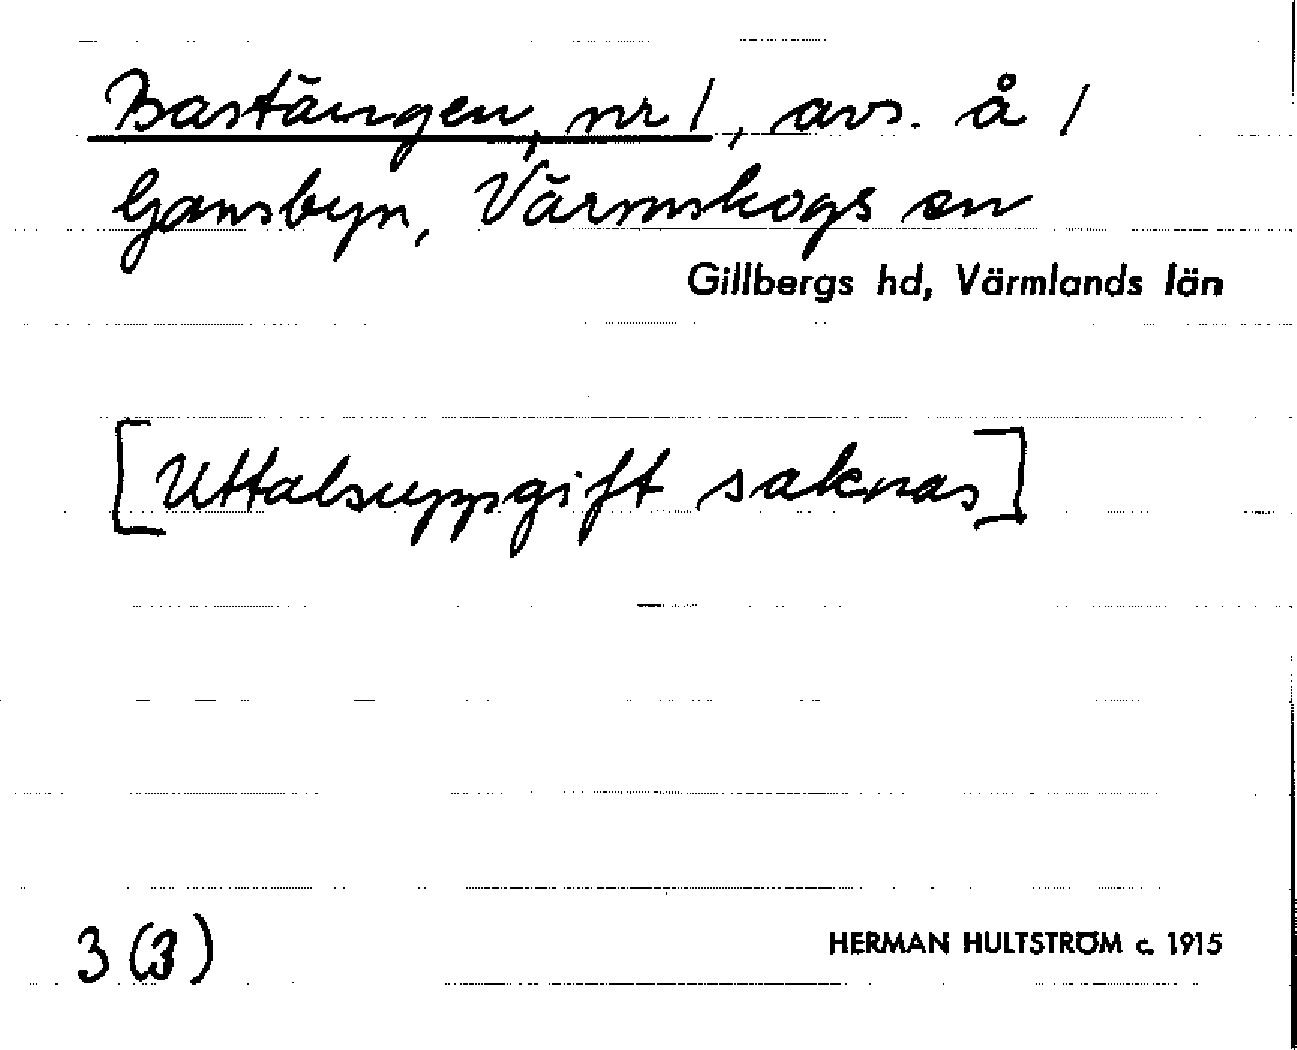 Bastängen, nr 1, avs. å 1
Gamsbyn, Värmskogs sn
Gillbergs hd, Värmlands län
[Uttalsuppgift saknas]
3 (3)
HERMAN HULTSTRÖM c. 1915